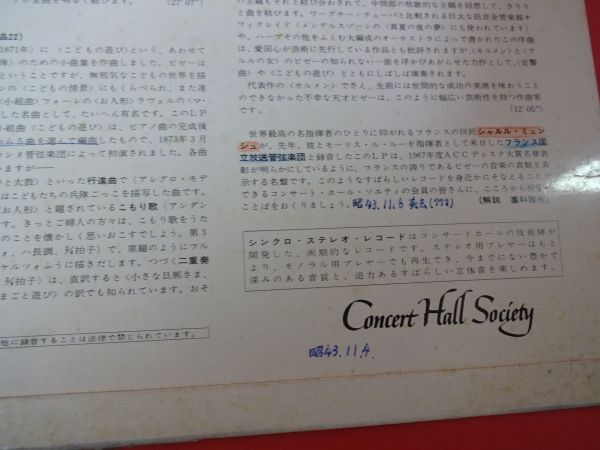 品22)
1871年) に〈こどもの遊び〉という、あわせて
のための小曲集を作曲しました。ビゼーは
ということですが、無邪気なこどもの世界を描
ンの〈こどもの情景〉にもくらべられ、また連
小組曲〉フォーレの〈お人形〉ラヴェルの〈マ・
した名曲として、たいへん有名です。このLP
小組曲〈こどもの遊び〉は、ピアノ曲の完成後
から5曲を選んで編曲したもので、1873年3月
ンヌ管弦楽団によって初演されました。各曲
いますが――
と太鼓〉といった行進曲で(アレグロ・モデ
はこどもたちの兵隊ごっこを描写した曲です。
〈お人形〉と題されているこもり歌(アンダン
す。きっとご婦人の方々は、こもり歌をうた
のことを懐かしく思いおこすでしょう。第3
ォ、ハ長調、2/4拍子)で、原題のようにフル
ケルツォふうに描きだします。つづく二重奏
2/4拍子)は、直訳すると〈小さな旦那さま、
まごと遊び〉の訳でも知られています。おそ
他に録音することは法律で禁じられています。
(27'07")
の主題もそれと結び合わされて、中間部の牧歌的な主題を回想して、きらり
と曲を結びます。ワーグナー・テューバと比較される巨大な低音金管楽器オ
フィクレイド(メンデルスゾーンの〈真夏の夜の夢〉にも使われています)
や、ハープその他をふくむ大編成のオーケストラによって書かれたこの序曲
は、愛国心が芸術に先行している作品とも批評されますが、〈カルメン〉と〈ア
ルルの女〉のビゼーの知られない一面を浮かびあがらせた力作として、〈交響
曲〉や〈こどもの遊び〉とともにしばしば演奏されます。
代表作の〈カルメン〉でさえ、生前には世間的な成功の美酒を味わうこと
のできなかった不幸な天才ビゼーは、このように幅広い芸術性を持つ作曲家
です。
(12'05")
世界最高の名指揮者のひとりに仰がれるフランスの巨匠シャルル・ミュン
シュが、先年、彼とモーリス・ル・ルーを指揮者として来日したフランス国
立放送管弦楽団と録音したこのLPは、1967年度ACCディスク大賞名誉表
彰が明らかにしているように、フランスの誇りであるビゼーの音楽の真髄を表
示する名盤です。このようなすばらしいレコードを身近かにそなえることが
できるコンサート・ホール・ソサエティの会員の皆さんに、こころから祝福の
ことばをおくりましょう。
昭43.11.6
シンクロ・ステレオ・レコードはコンサートホールの技術陣が
開発した、画期的なレコードです。ステレオ用プレヤーはもと
より、モノラル用プレヤーでも再生でき、今までにない豊かで
深みのある音質と、迫力あるすばらしい立体音を楽しめます。
Concert Hall Society
昭43.11.4.